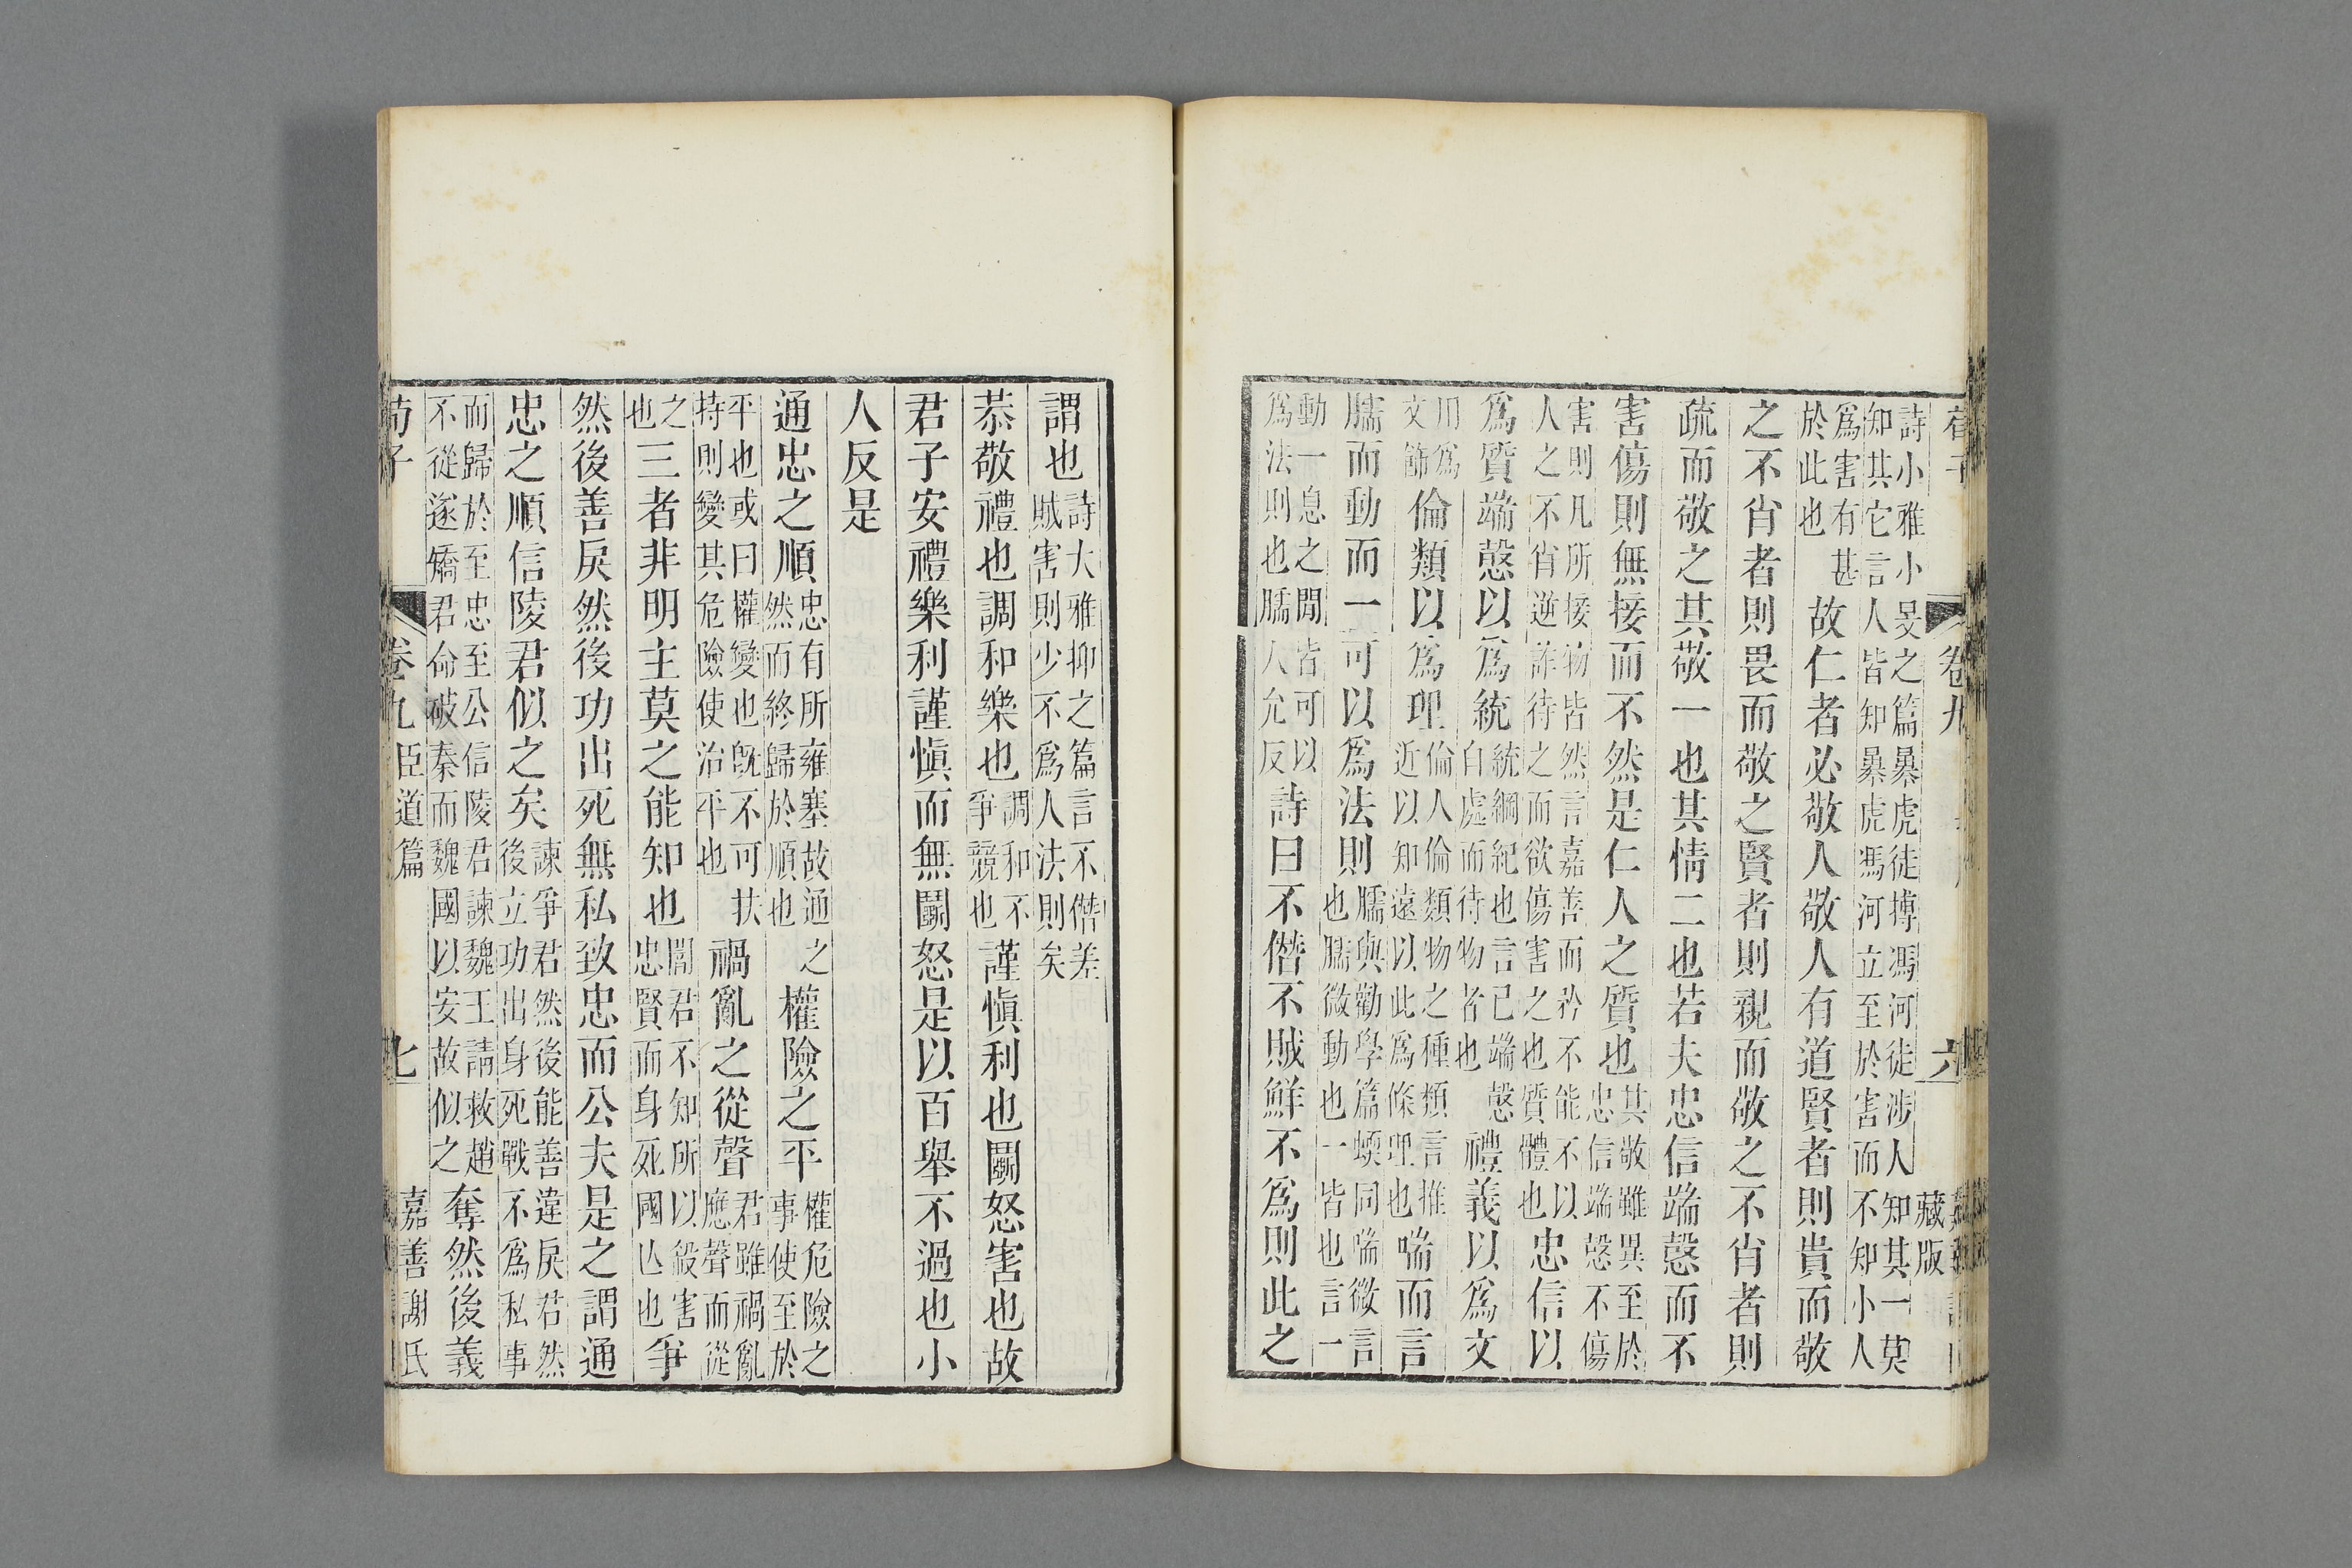 荀子 卷九 六 藏版
詩小雅小旻之篇暴虎徒搏馮河徒涉人知其一莫
知其它言人皆知暴虎馮河立至於害而不知小人
爲害有甚於此也故仁者必敬人敬人有道賢者則貴而敬
之不肖者則畏而敬之賢者則親而敬之不肖者則
疏而敬之其敬一也其情二也若夫忠信端慤而不
害傷則無接而不然是仁人之質也其敬雖異至於忠信端慤不傷
害則凡所接物皆然言嘉善而矜不能不以人之不肖逆詐待之而欲傷害之也質體也忠信以
爲質端慤以爲統統綱紀也言已端慤自處而待物者也禮義以爲文
用爲文飾倫類以爲理倫人倫類物之種類言推近以知遠以此爲條理也喘而言
臑而動而一可以爲法則臑與勸學篇蝡同喘微言也臑微動也一皆也言一
動一息之閒皆可以爲法則也臑人允反詩曰不僭不賊鮮不爲則此之
謂也詩大雅抑之篇言不僭差賊害則少不爲人法則矣
恭敬禮也調和樂也調和不爭競也謹愼利也鬭怒害也故
君子安禮樂利謹愼而無鬭怒是以百舉不過也小
人反是
通忠之順忠有所雍塞故通之然而終歸於順也權險之平權危險之事使至於
平也或曰權變也旣不可扶持則變其危險使治平也禍亂之從聲君雖禍亂應聲而從
之也三者非明主莫之能知也闇君不知所以殺害忠賢而身死國亾也爭
然後善戾然後功出死無私致忠而公夫是之謂通
忠之順信陵君似之矣諫爭君然後能善違戾君然後立功出身死戰不爲私事
而歸於至忠至公信陵君諫魏王請救趙不從遂矯君命破秦而魏國以安故似之奪然後義
荀子 卷九臣道篇 七 嘉善謝氏